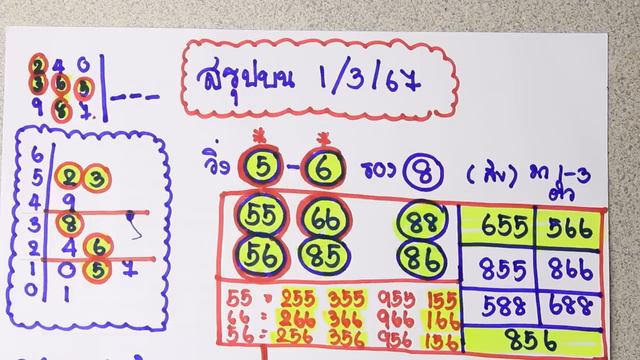 สรุปบน 1/3/67
2 4 0
3 6 5
9 8 7
6
5 2 3
4 9
3 8
2 4 6
1 0 5 7
0 1
วิ่ง 5 - 6 รอง 8
55 66 88
56 85 86
655 566
855 866
588 688
856
55 = 255 355 955 155
66 = 266 366 966 166
56 = 256 356 956 156